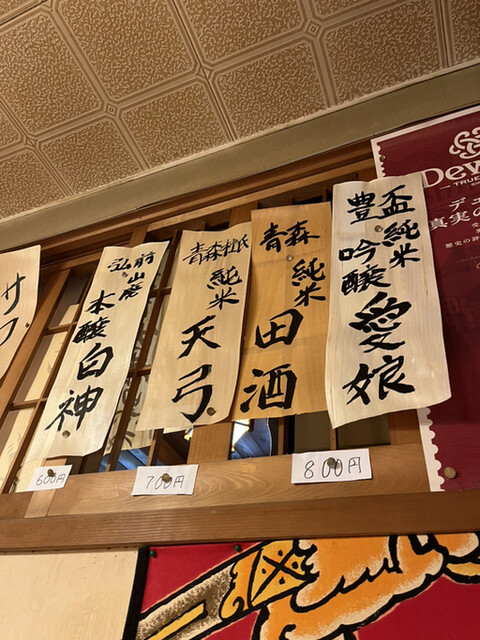 Dew
TRUE
デュ
真実の
豊盃
純米
吟醸
愛娘
800円
青森
純米
田酒
青森
純米
天弓
700円
弘前
山廃
本醸
白神
600円
サワ